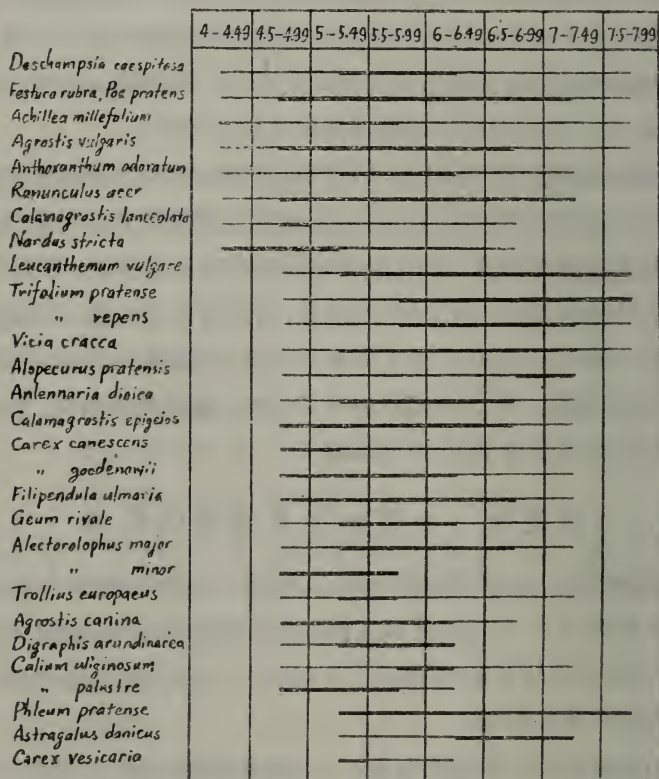 4-4.49 4.5-4.99 5-5.49 5.5-5.99 6-6.49 6.5-6.99 7-7.49 7.5-7.99
Deschampsia caespitosa
Festuca rubra, Poa pratens
Achillea millefolium
Agrostis vulgaris
Anthoxanthum odoratum
Ranunculus acer
Calamagrostis lanceolata
Nardus stricta
Leucanthemum vulgare
Trifolium pratense
" repens
Vicia cracca
Alopecurus pratensis
Antennaria dioica
Calamagrostis epigeios
Carex canescens
" goodenowii
Filipendula ulmaria
Geum rivale
Alectorolophus major
" minor
Trollius europaeus
Agrostis canina
Digraphis arundinacea
Galium uliginosum
" palustre
Phleum pratense
Astragalus danicus
Carex vesicaria